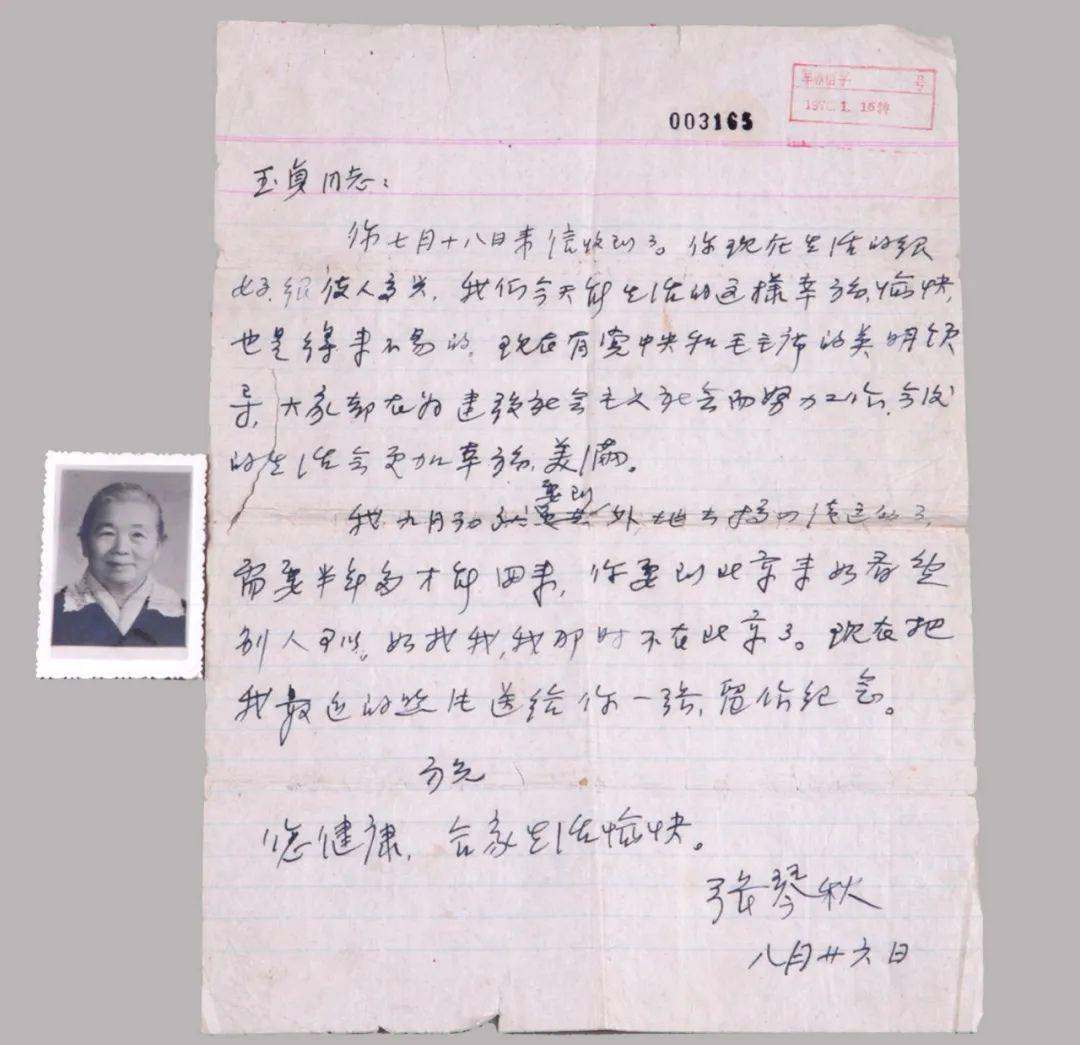 号
003165
玉貞同志：
你七月十八日来信收到了。你现在生活的很
好，很使人高兴，我们今天能生活的这樣幸福、愉快，
也是得来不易的，现在有党中央和毛主席的英明领
导，大家都在为建设社会主义社会而努力工作，今后
的生活会更加幸福、美满。
要到
我九月初就 外地去搞四清运动了，
需要半年多才能回来，你要到北京来如看望
别人可以，如找我，我那时不在北京了。现在把
我最近的照片送给你一张，留作纪念。
祝
您健康，合家生活愉快。
张琴秋
八月廿六日